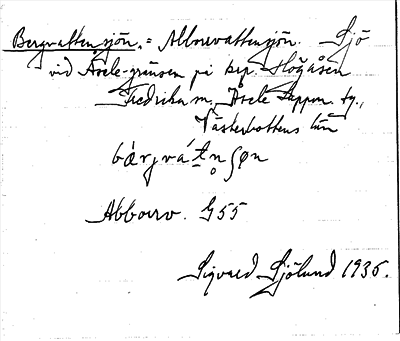 Bergvattensjön. = Abborrvattensjön. Sjö
vid Åsele-gränsen på krp. Högåsen
Fredrika sn, Åsele Lappm. tg.,
Västerbottens län
bǽrgvátn̥ʃøn
Abborrv. G55
Sigvard Sjölund 1935.